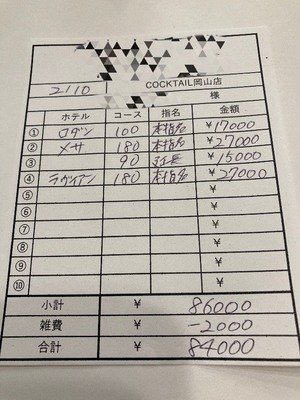 2/10
COCKTAIL岡山店
様
ホテル コース 指名 金額
① ロダン 100 本指名 ¥17000
② メサ 180 本指名 ¥27000
③ 90 延長 ¥15000
④ ラヴィアン 180 本指名 ¥27000
⑤ ¥
⑥ ¥
⑦ ¥
⑧ ¥
⑨ ¥
⑩ ¥
小計 ¥ 86000
雑費 ¥ -2000
合計 ¥ 84000